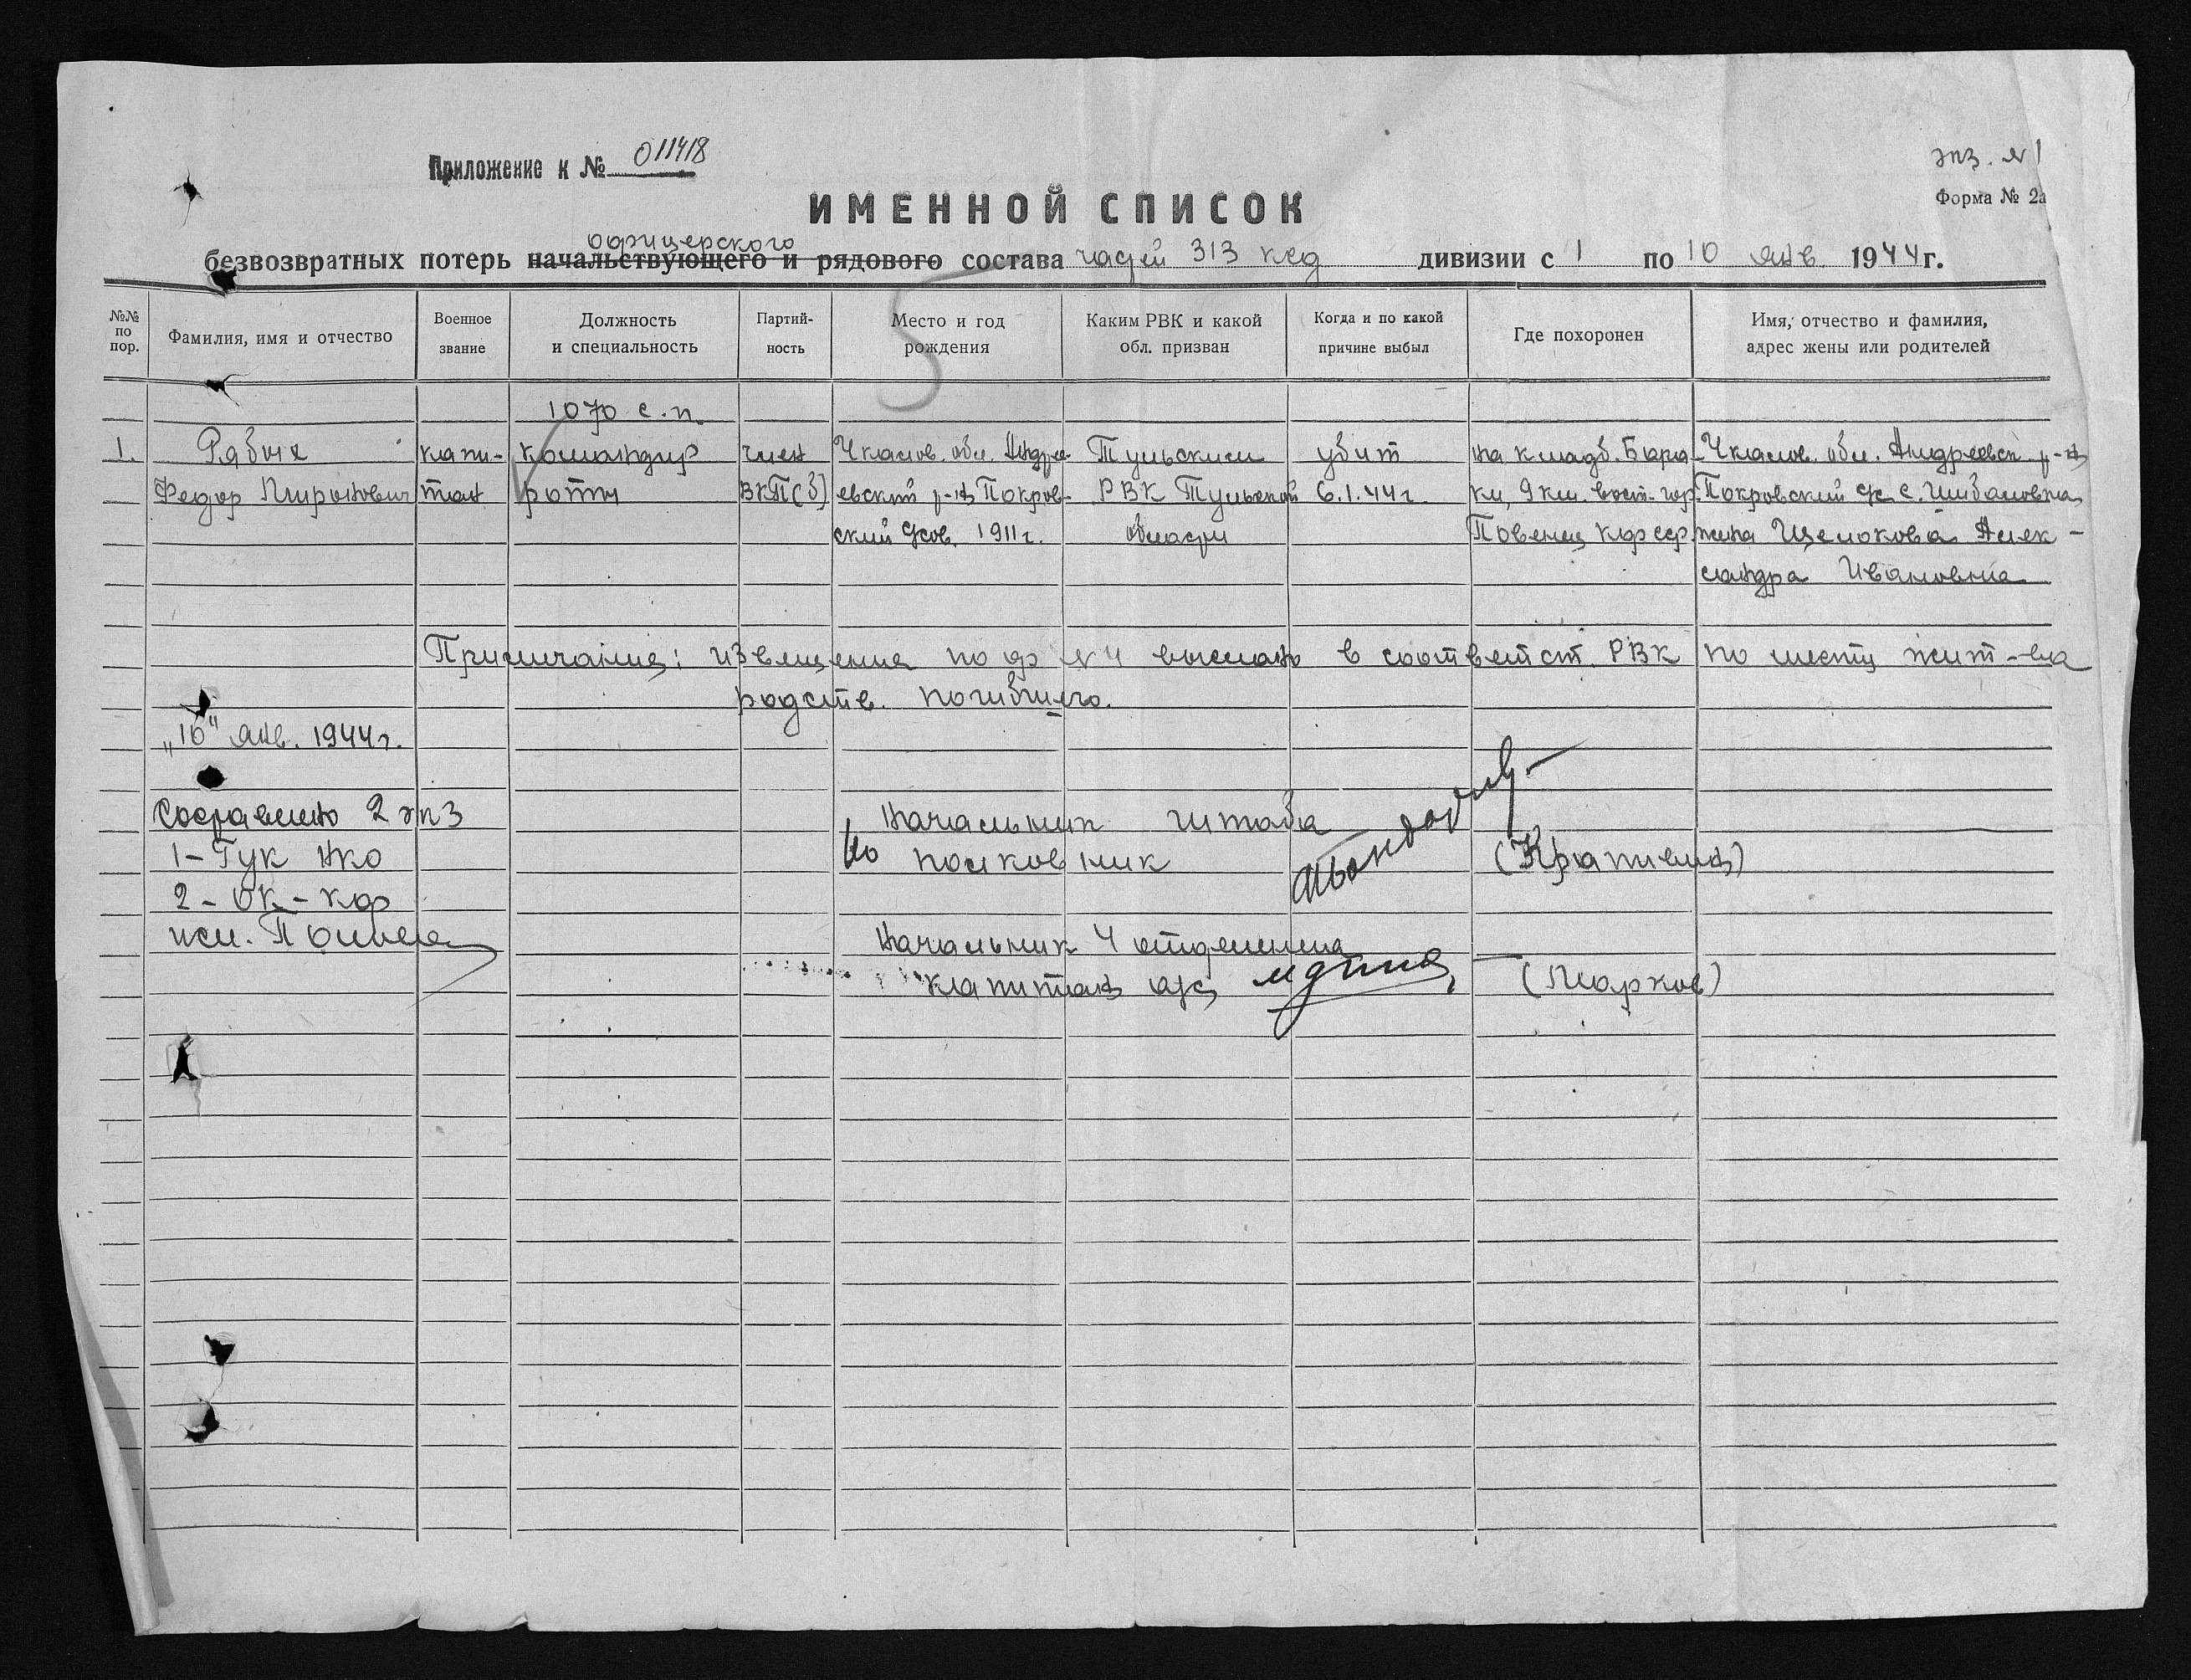 Приложение к № 011418
экз. №1
Форма № 2а
ИМЕННОЙ СПИСОК
офицерского
безвозвратных потерь начальствующего и рядового состава частей 313 ксд дивизии с 1 по 10 янв. 1944 г.
№№ по пор.
Фамилия, имя и отчество
Военное звание
Должность и специальность
Партий- ность
Место и год рождения
Каким РВК и какой обл. призван
Когда и по какой причине выбыл
Где похоронен
Имя, отчество и фамилия, адрес жены или родителей
1070 с.п
1. Рябых капи- командир член Чкалов. обл. Андре- Тульским убит на кладб. Бара- Чкалов. обл. Андреевск. р-н
Федор Миронович тан роты ВКП(б) евский р-н Покров- РВК Тульской 6.1.44 г. ки, 9 км. вост. гор. Покровский с/с с.
ский с/сов. 1911 г. области Повенец кф сср жена Щелокова Алек-
сандра Ивановна
Примечание: извещения по ф №4 выслано в соответст. РВК по месту жит-ва
родств. погибшего.
„16" янв. 1944 г.
Составлено 2 экз
1 - Гук НКО
2 - ОК - КФ
исп.
Начальник штаба
полковник
Начальник 4 отделения
капитан а/с
(Марков)